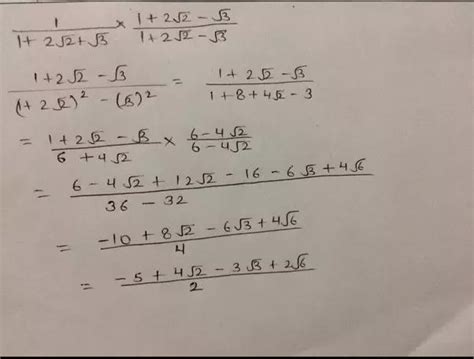 1/(1+ 2√2+√3) × (1+2√2-√3)/(1+2√2-√3)
(1+2√2 -√3)/((1+2√2)² - (√3)²) = (1+2√2-√3)/(1+8+4√2-3)
= (1+2√2 -√3)/(6 +4√2) × (6-4√2)/(6-4√2)
= (6 - 4√2 + 12√2 - 16 - 6√3 + 4√6)/(36 - 32)
= (-10 + 8√2 - 6√3 + 4√6)/4
= (-5 + 4√2 - 3√3 + 2√6)/2